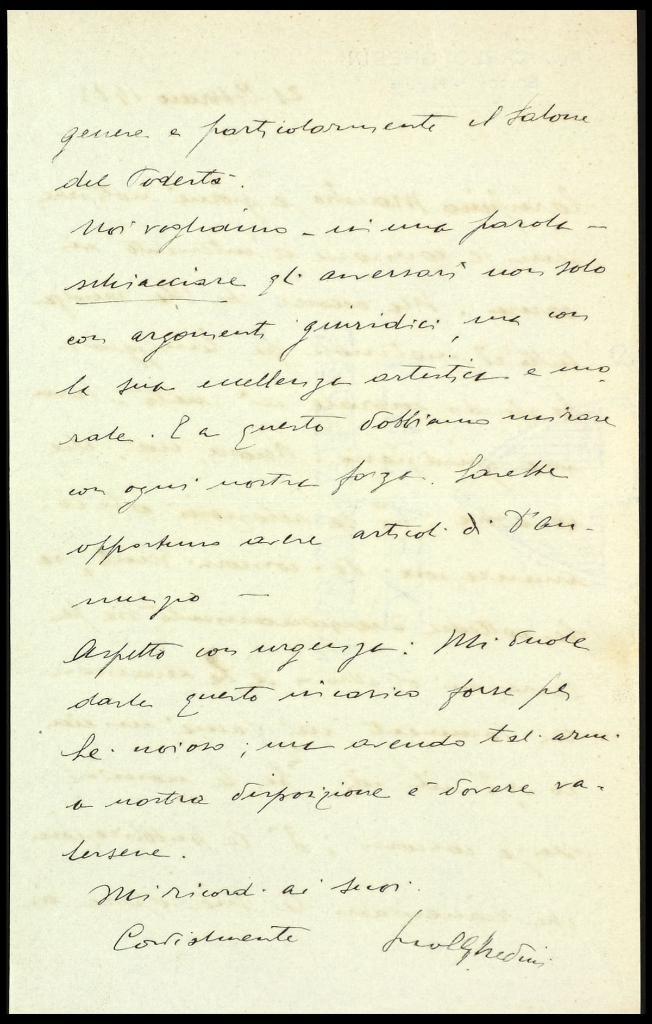 genere e particolarmente il Salone
del Podestà.
Noi vogliamo – in una parola –
schiacciare gli avversari non solo
con argomenti giuridici, ma con
la sua eccellenza artistica e mo-
rale. E a questo dobbiamo mirare
con ogni nostra forza. Sarebbe
opportuno avere articoli di D'An-
nunzio –
Aspetto con urgenza: Mi duole
darle questo incarico forse per
Lei noioso; ma avendo tali armi
a nostra disposizione è dovere va-
lersene.
Mi ricordi ai suoi.
Cordialmente